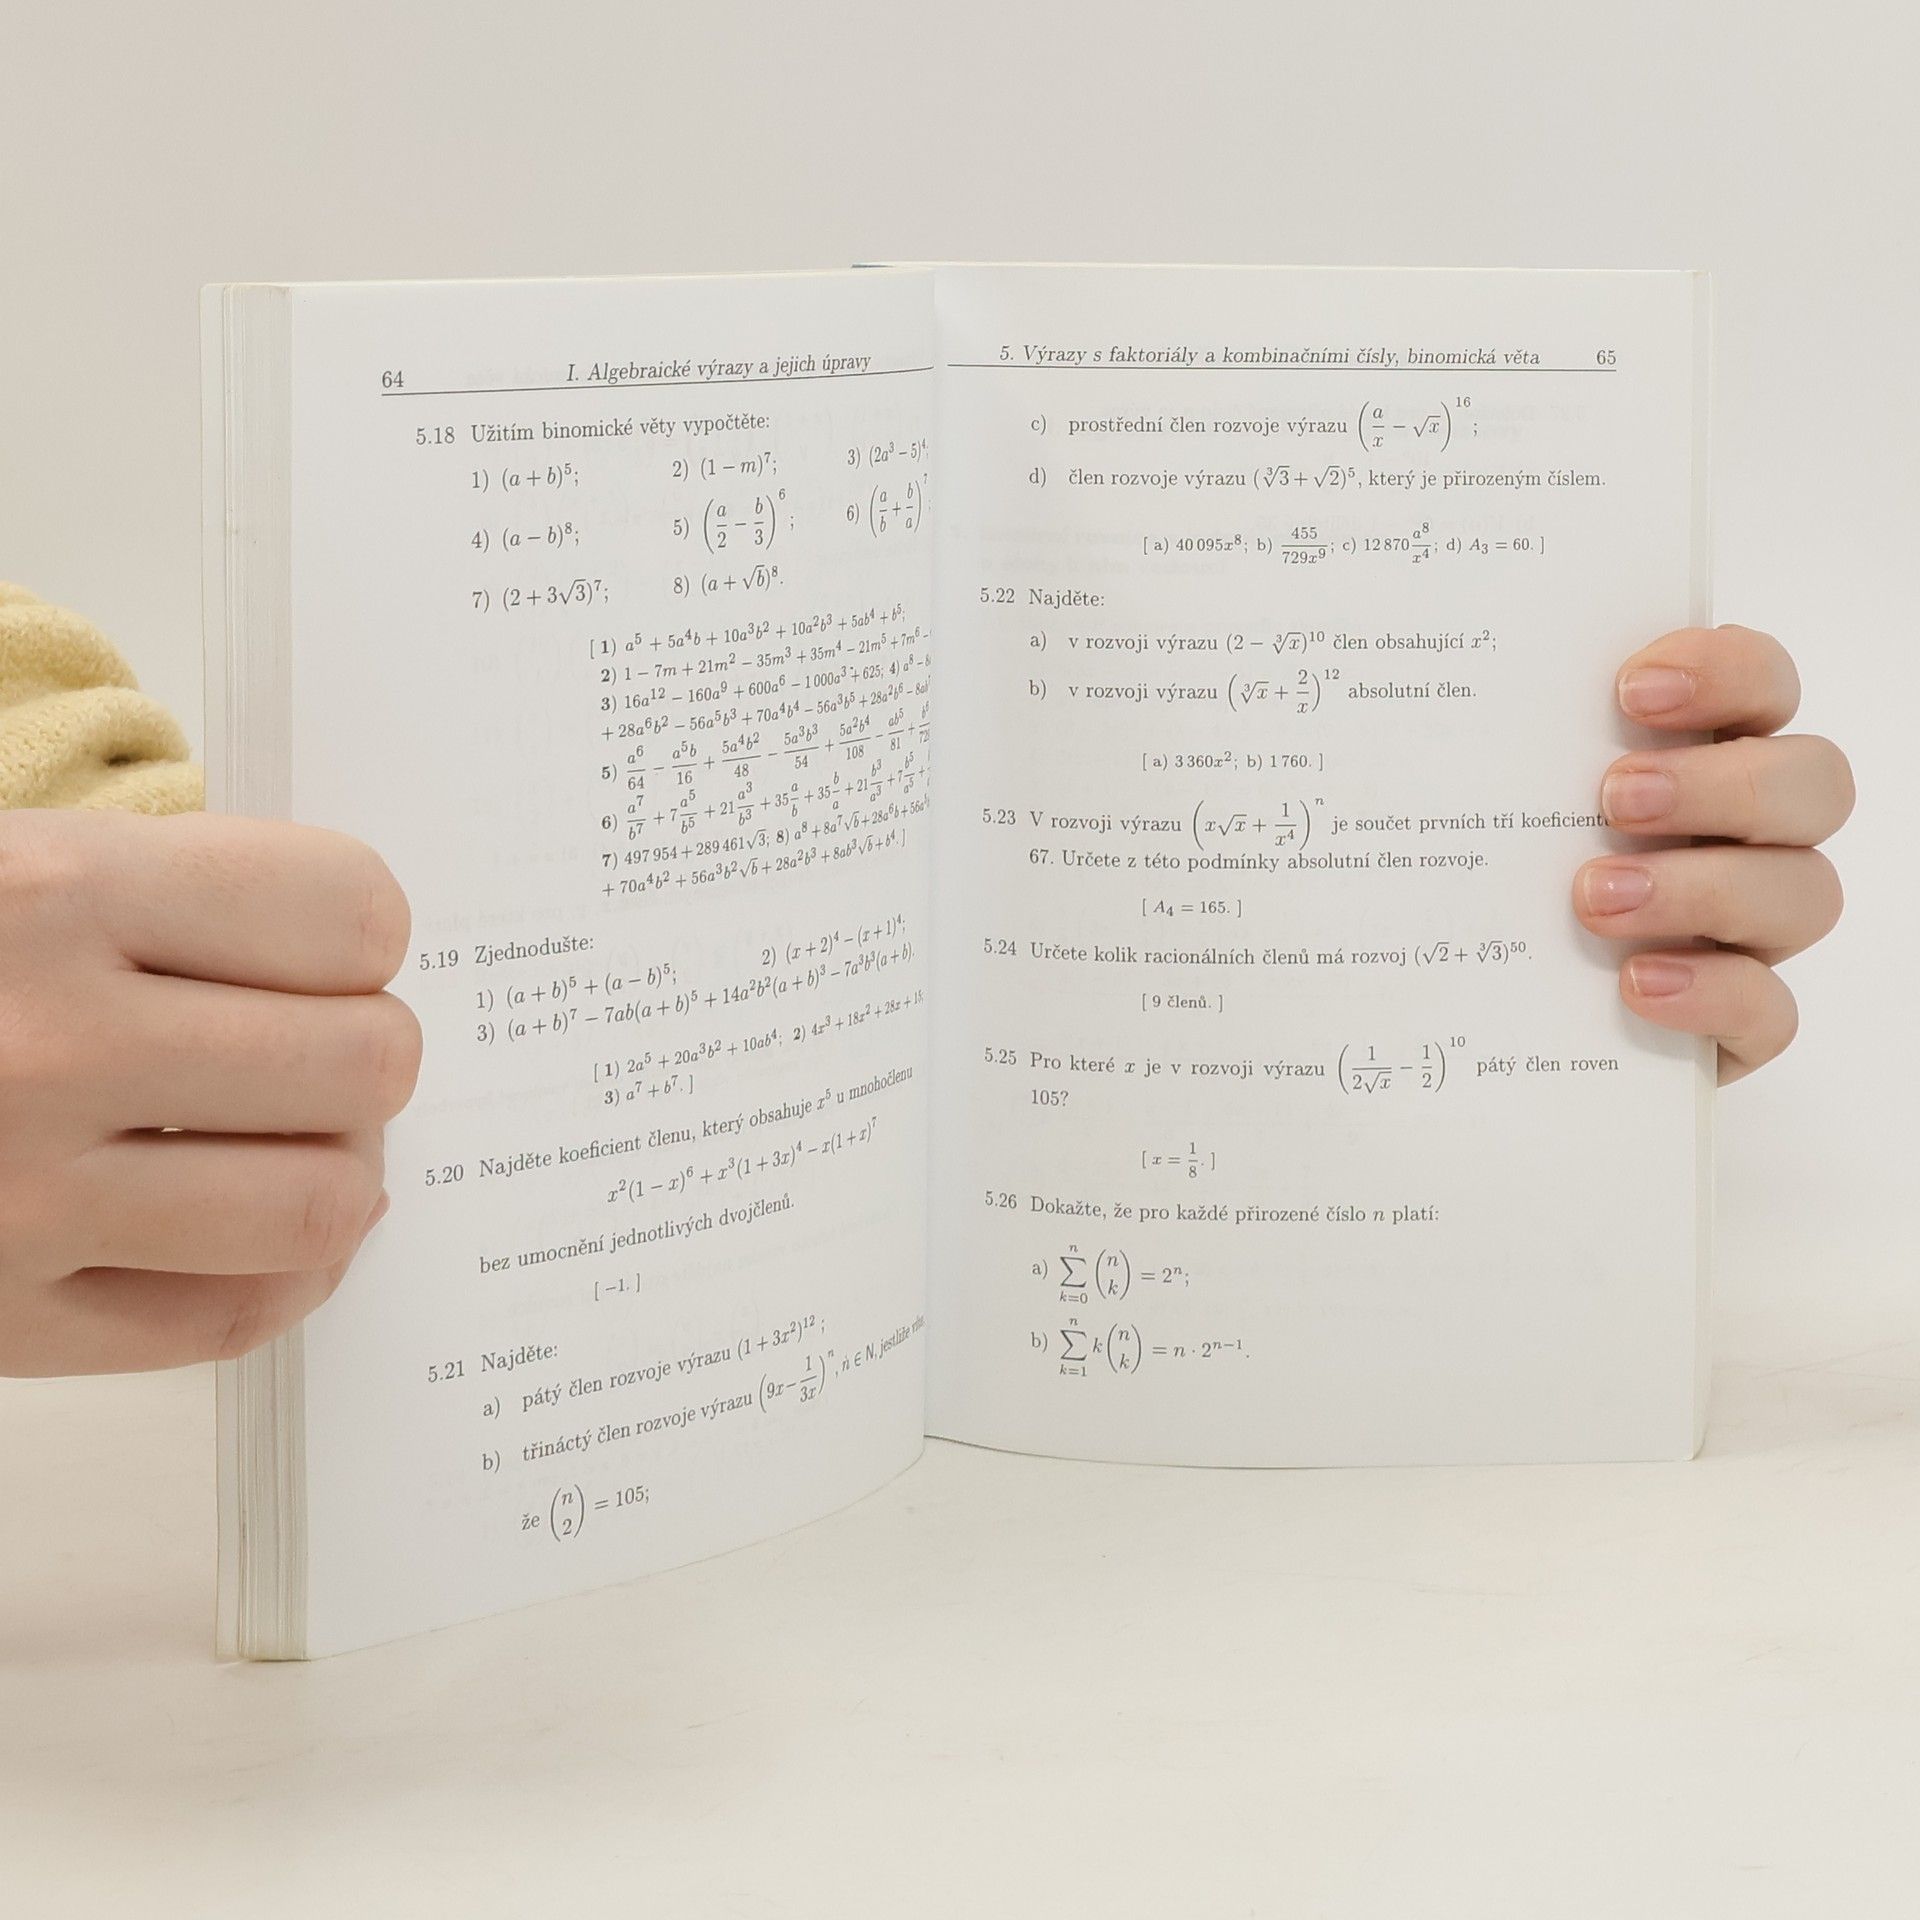 64 I. Algebraické výrazy a jejich úpravy
5.18 Užitím binomické věty vypočtěte:
1) (a + b)⁵; 2) (1 − m)⁷; 3) (2a³ − 5)⁴;
4) (a − b)⁸; 5) (a/2 − b/3)⁶; 6) (a/b + b/a)⁷;
7) (2 + 3√3)⁷; 8) (a + √b)⁸.
[ 1) a⁵ + 5a⁴b + 10a³b² + 10a²b³ + 5ab⁴ + b⁵;
2) 1 − 7m + 21m² − 35m³ + 35m⁴ − 21m⁵ + 7m⁶ −
3) 16a¹² − 160a⁹ + 600a⁶ − 1 000a³ + 625; 4) a⁸ −
+ 28a⁶b² − 56a⁵b³ + 70a⁴b⁴ − 56a³b⁵ + 28a²b⁶ − 8ab⁷
5) a⁶/64 − a⁵b/16 + 5a⁴b²/48 − 5a³b³/54 + 5a²b⁴/108 − ab⁵/81 +
6) a⁷/b⁷ + 7a⁵/b⁵ + 21a³/b³ + 35a/b + 35b/a + 21b³/a³ + 7b⁵/a⁵ +
7) 497 954 + 289 461√3; 8) a⁸ + 8a⁷√b + 28a⁶b + 56a⁵
+ 70a⁴b² + 56a³b²√b + 28a²b³ + 8ab³√b + b⁴. ]
5.19 Zjednodušte:
1) (a + b)⁵ + (a − b)⁵; 2) (x + 2)⁴ − (x + 1)⁴;
3) (a + b)⁷ − 7ab(a + b)⁵ + 14a²b²(a + b)³ − 7a³b³(a + b).
[ 1) 2a⁵ + 20a³b² + 10ab⁴; 2) 4x³ + 18x² + 28x + 15;
3) a⁷ + b⁷. ]
5.20 Najděte koeficient členu, který obsahuje x⁵ u mnohočlenu
x²(1 − x)⁶ + x³(1 + 3x)⁴ − x(1 + x)⁷
bez umocnění jednotlivých dvojčlenů.
[ −1. ]
5.21 Najděte:
a) pátý člen rozvoje výrazu (1 + 3x²)¹²;
b) třináctý člen rozvoje výrazu (9x − 1/3x)ⁿ, n ∈ N, jestliže víte,
že (n 2) = 105;
5. Výrazy s faktoriály a kombinačními čísly, binomická věta 65
c) prostřední člen rozvoje výrazu (a/x − √x)¹⁶;
d) člen rozvoje výrazu (∛3 + √2)⁵, který je přirozeným číslem.
[ a) 40 095x⁸; b) 455/729x⁹; c) 12 870 a⁸/x⁴; d) A₃ = 60. ]
5.22 Najděte:
a) v rozvoji výrazu (2 − ∛x)¹⁰ člen obsahující x²;
b) v rozvoji výrazu (∛x + 2/x)¹² absolutní člen.
[ a) 3 360x²; b) 1 760. ]
5.23 V rozvoji výrazu (x√x + 1/x⁴)ⁿ je součet prvních tří koeficient
67. Určete z této podmínky absolutní člen rozvoje.
[ A₄ = 165. ]
5.24 Určete kolik racionálních členů má rozvoj (√2 + ∛3)⁵⁰.
[ 9 členů. ]
5.25 Pro které x je v rozvoji výrazu (1/2√x − 1/2)¹⁰ pátý člen roven
105?
[ x = 1/8. ]
5.26 Dokažte, že pro každé přirozené číslo n platí:
a) ∑ₖ₌₀ⁿ (n k) = 2ⁿ;
b) ∑ₖ₌₁ⁿ k(n k) = n · 2ⁿ⁻¹.